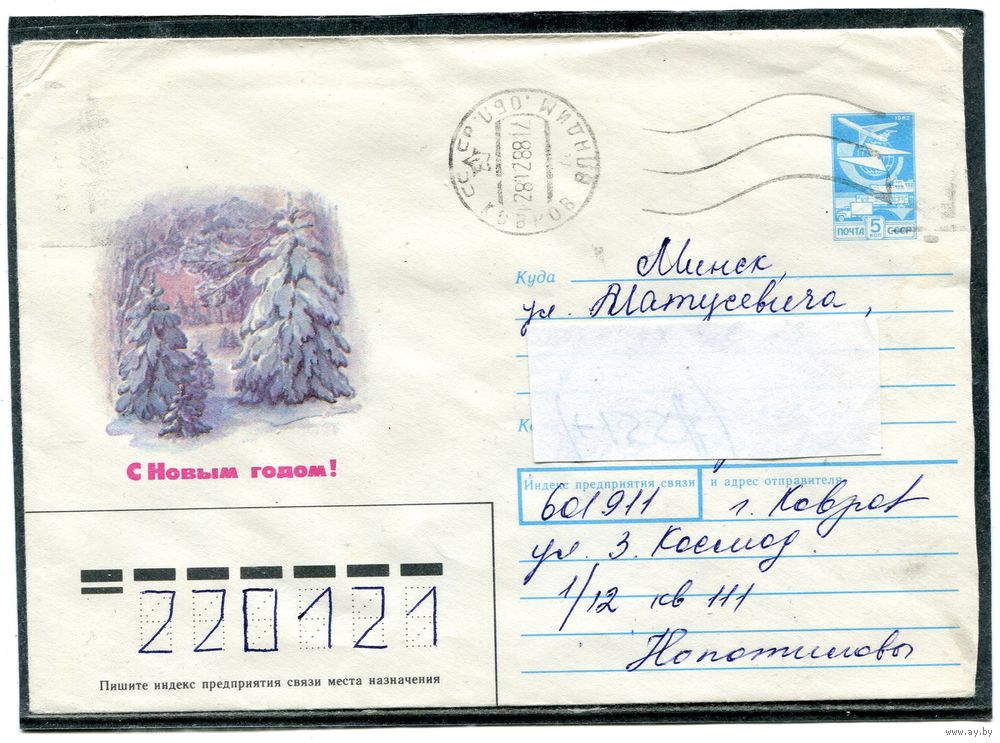 1982
ПОЧТА 5 КОП СССР
СССР ВЛАДИМ. ОБЛ.
КОВРОВ
Куда Минск,
ул. Матусевича,
Индекс предприятия связи и адрес отправителя
601911 г. Ковров
ул. З. Космод.
1/12 кв 111
С Новым годом!
220121
Пишите индекс предприятия связи места назначения
www.ay.by